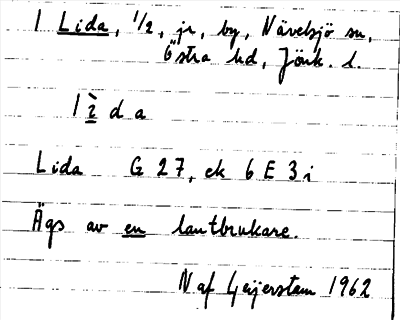 1 Lida, 1/2, jr, by, Nävelsjö sn,
Östra hd, Jönk. l.
lìda
Lida G 27, ek 6 E 3 i
Ägs av en lantbrukare.
N af Geijerstam 1962